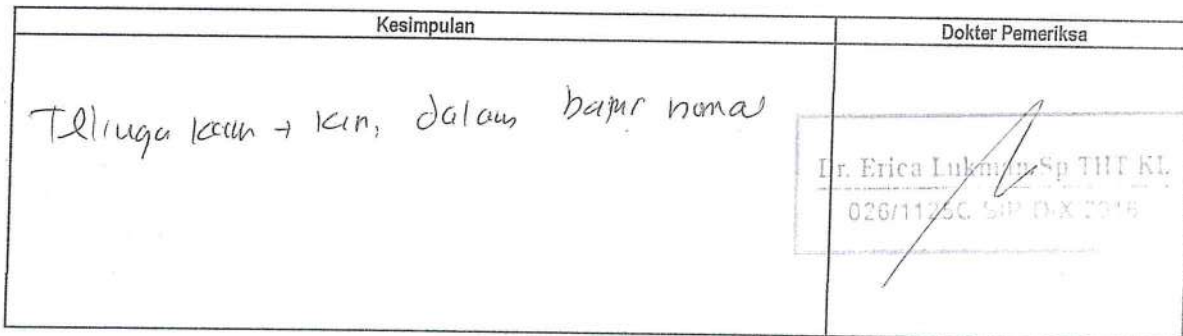 Kesimpulan
Dokter Pemeriksa
Telinga kann + kin, dalam batas normal
Dr. Erica Lukman, Sp THT KL
026/1125C SIP D-X 2016